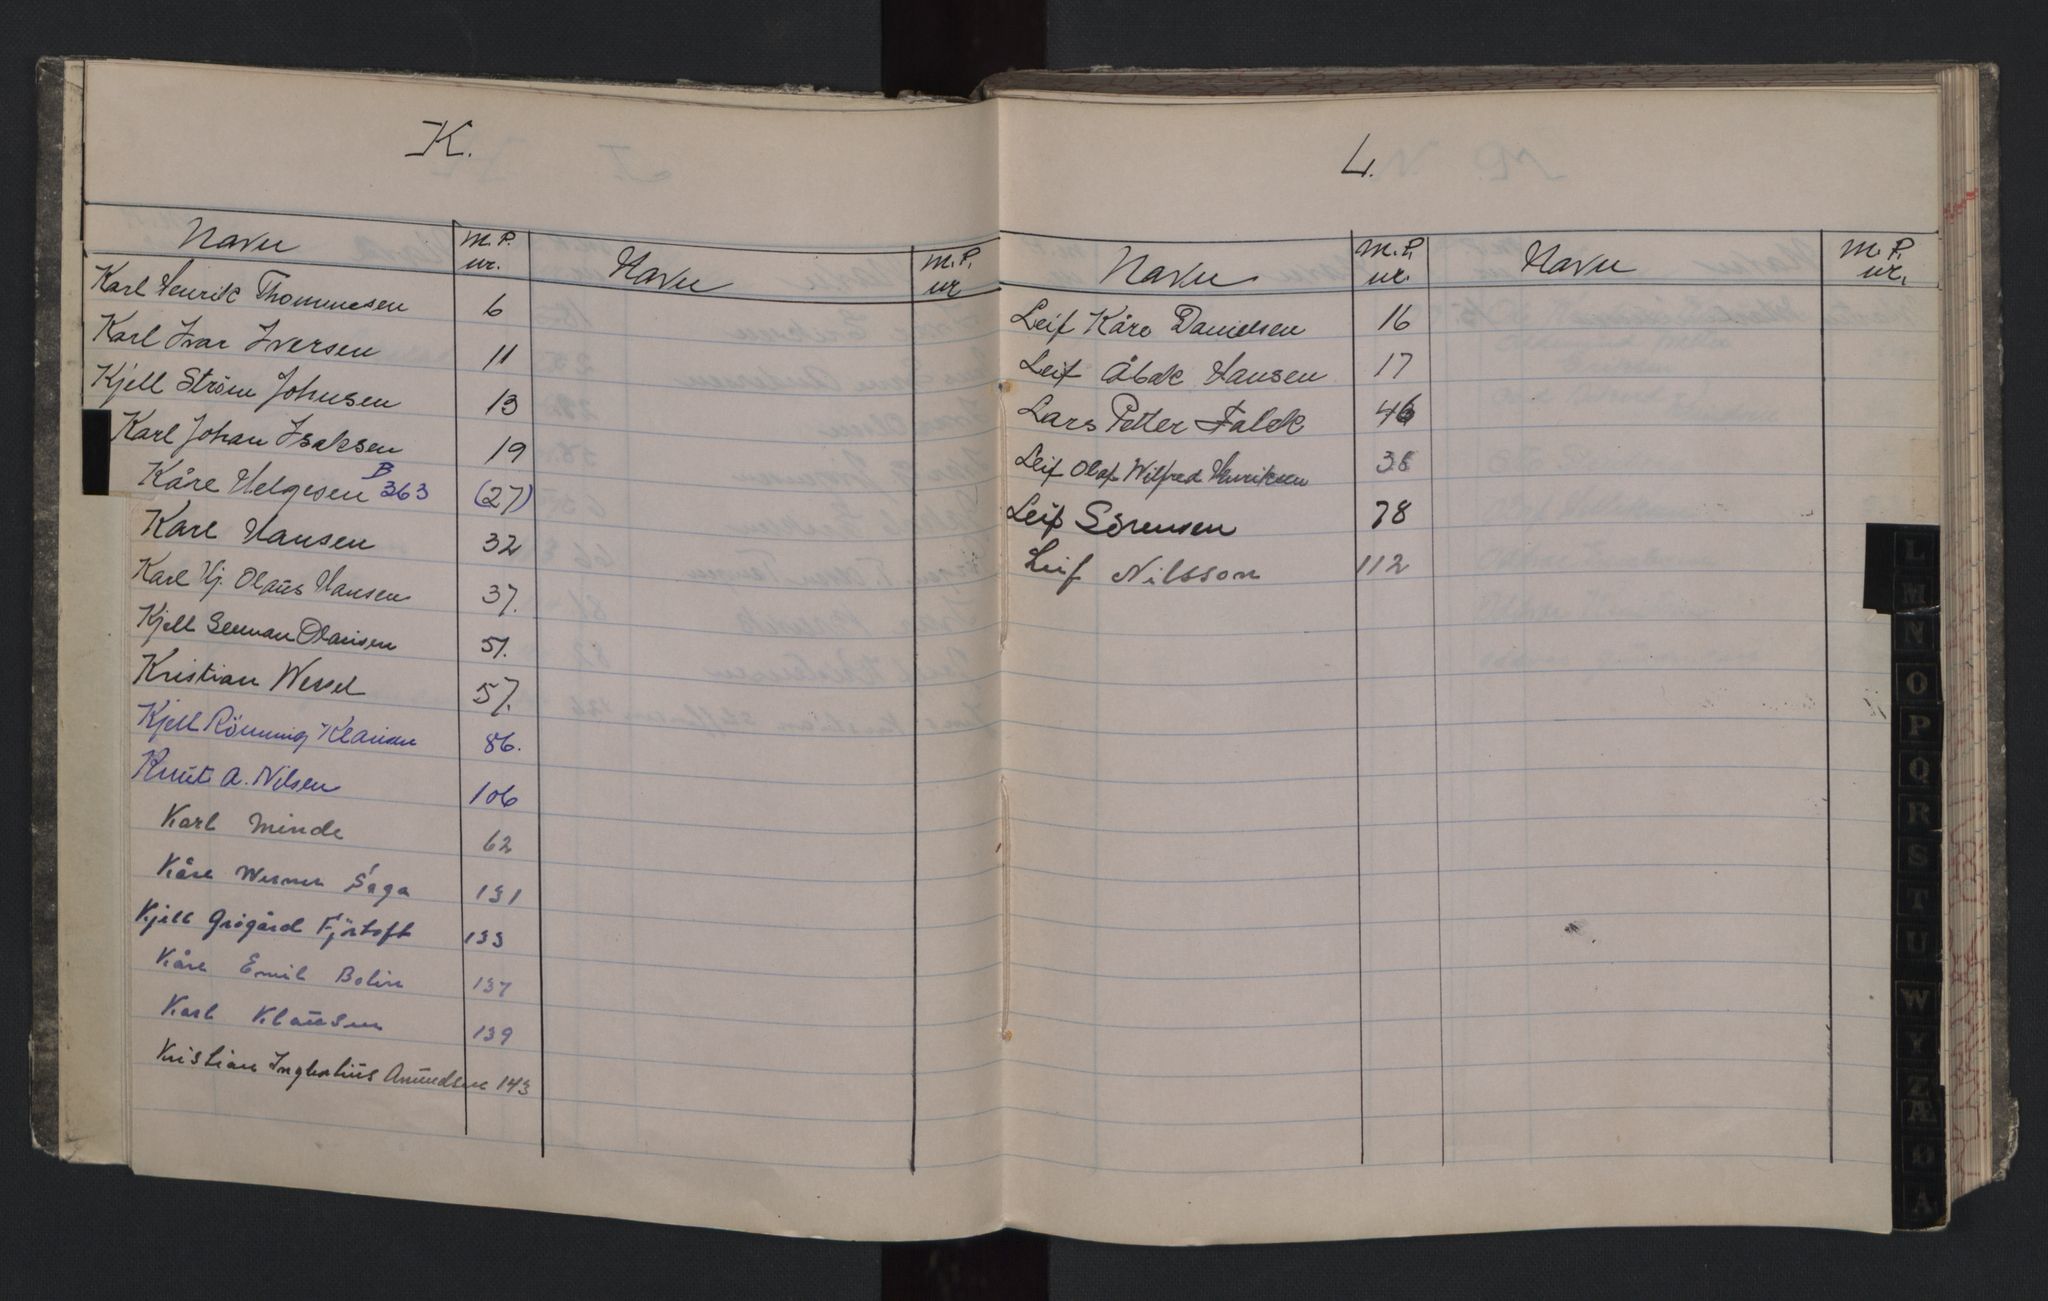 K.
Navn M.P. nr. Navn M.P. nr
Karl Henrik Thommesen 6
Karl Ivar Iversen 11
Kjell Ström Johnsen 13
Karl Johan Isaksen 19
Kåre Helgesen B 363 (27)
Karl Hansen 32
Karl Hj. Olaus Hansen 37.
Kjell Olausen 51.
Kristian Wessel 57.
Kjell Rönning Klausen 86.
Knut A. Nilsen 106
Karl Minde 62
Kåre Werner Saga 131
Kjell Grøgård Fjörtoft 133
Kåre Emil Bolin 137
Karl Klausen 139
Kristian Amundsen 143
L.
Navn M.P. nr. Navn M.P. nr.
Leif Kåre Danielsen 16
Leif Hansen 17
Lars Petter Falck 46
Leif Olaf Wilfred Henriksen 38
Leif Sörensen 78
Leif Nilsson 112
L
M
N
O
P
Q
R
S
T
U
W
Y
Z
Æ
Ø
A